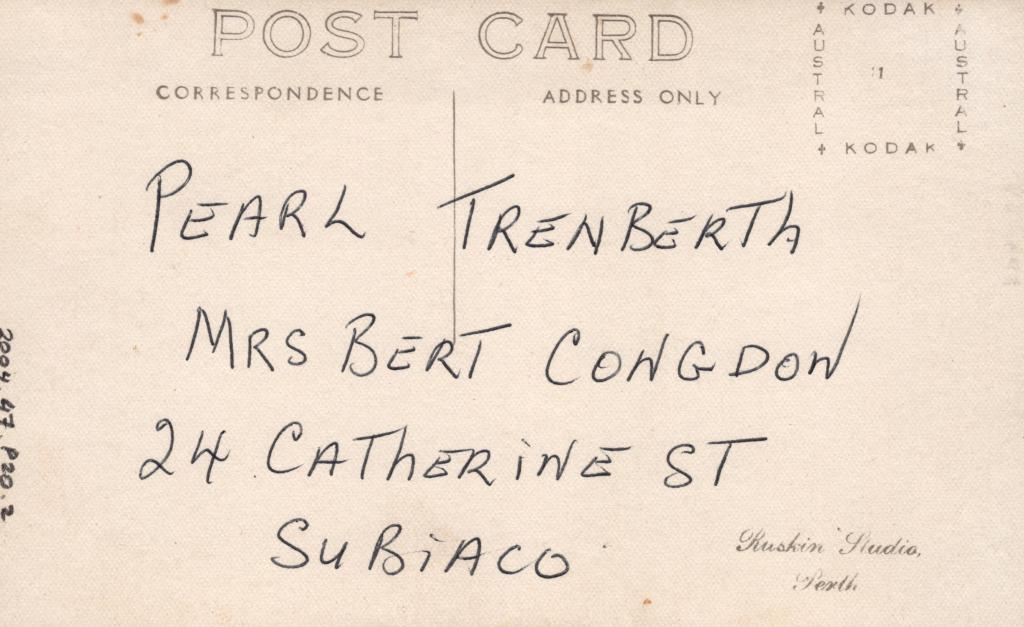 POST CARD
CORRESPONDENCE
ADDRESS ONLY
KODAK
AUSTRAL
AUSTRAL
KODAK
PEARL TRENBERTH
MRS BERT CONGDON
24 CATHERINE ST
SUBIACO
Ruskin Studio,
Perth
2004.47.P20.2